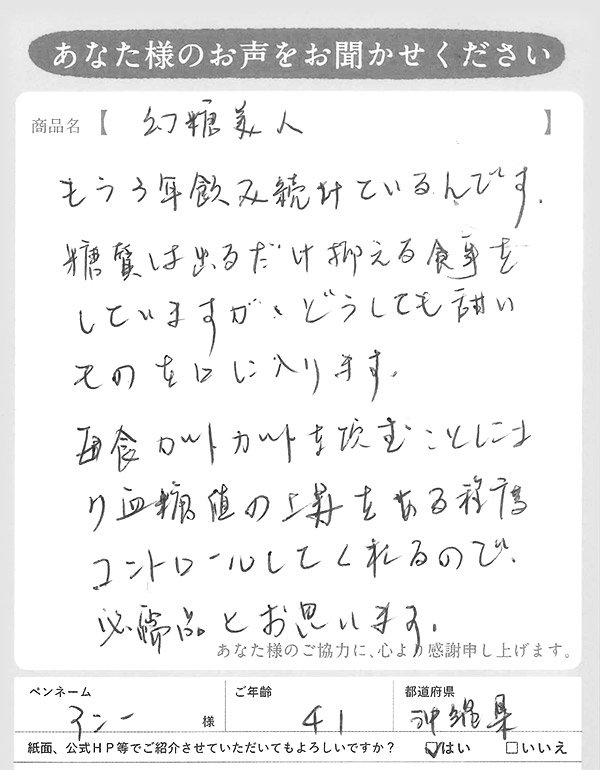 あなた様のお声をお聞かせください
商品名【 幻糖美人 】
もう3年飲み続けているんです.
糖質は出るだけ抑える食事を
していますが、どうしても甜い
ものを口に入ります.
毎食カットカットを飲むことによ
り血糖値の上昇をある程度
コントロールしてくれるので、
必需品とお思います.
あなた様のご協力に、心より感謝申し上げます。
ペンネーム ご年齢 都道府県
様 41 沖縄県
紙面、公式HP等でご紹介させていただいてもよろしいですか? ☑はい □いいえ